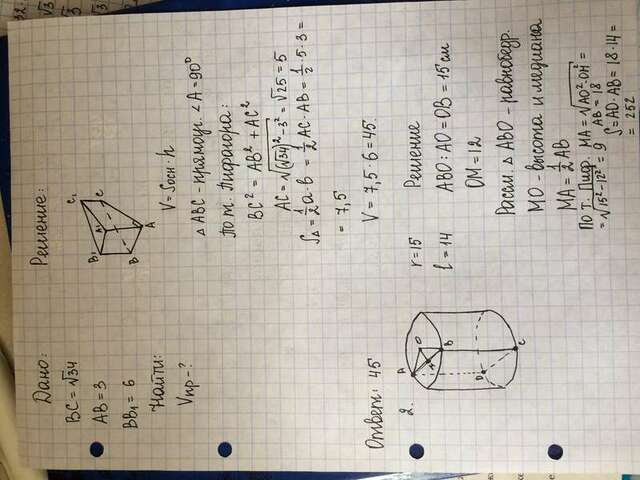 Дано:
BC = √34
AB = 3
BB₁ = 6
Найти:
Vпр - ?
Решение:
B₁
A₁
C₁
B
C
A
V = Sосн · h
△ABC - прямоуг. ∠A = 90°
По т. Пифагора:
BC² = AB² + AC²
AC = √(√34)² - 3² = √25 = 5
S△ = 1/2 a · b = 1/2 AC · AB = 1/2 · 5 · 3 =
= 7,5
V = 7,5 · 6 = 45.
Ответ: 45
2.
A
O
M
B
D
C
r = 15
l = 14
Решение
ABO: AO = OB = 15 см
OM = 12
Рассм. △ ABO - равнобедр.
MO - высота и медиана
MA = 1/2 AB
По т. Пиф. MA = √AO² - OM² =
= √15² - 12² = 9
AB = 18
S = AD · AB = 18 · 14 =
= 252